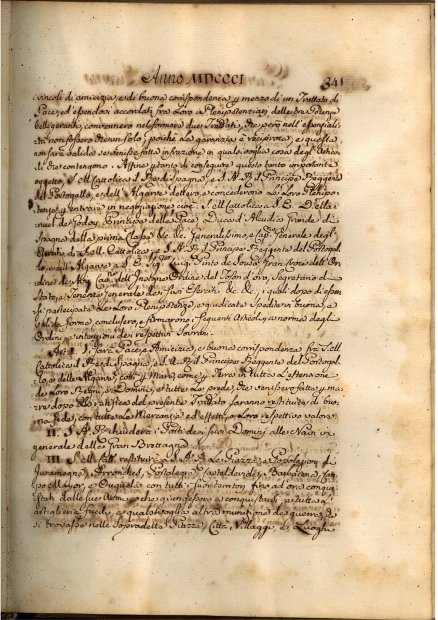 Anno MDCCCI 341
vincoli di amicizia, e di buona corrispondenza p mezzo di un Trattato di
Pace; ed essendosi accordati fra Loro i Plenipotenziarj delle tre Potenze
belligeranti, convennero nel formare due Trattati, che però nell'essenziali-
tà non fossero che un solo, poichè la garanzia è reciproca, e questa
non sarà valida se venisse fatta infrazione in qualsivoglia cosa degl'Articoli
di che contengono. Affine p tanto di conseguire questo tanto importante
oggetto, S. M. Cattolica il Re di Spagna, e S. A. R. il Principe Reggente
del Portogallo, e dell'Algarve dettero, e concederono alle Loro Plenipo-
tenze p entrare in negoziazione cioè: S. M. Cattolica a S. E. D. Ema-
nuel de Godoy, Principe della Pace, Duca d'Alcudia Grande di
Spagna della prima Classe &c. &c. Generalissimo, e Cap. Generale degl'
Eserciti di S. M. Cattolica; e S. A. R. il Principe Reggente del Portogal-
lo, e dell'Algarve a S. E. Luigi Pinto de Sousa, Gran Croce dell'Or-
dine de Aviz, Cav. dell'Insigne Ordine del Toson d'oro, Segretario di
Stato, e Tenente Generale de' suoi Eserciti &c. &c.; i quali dopo di esser-
si partecipate le Loro Plenipotenze, e giudicate spedite in buona, e
valida forma, conclusero, e firmarono i seguenti Articoli, a norma degl'
Ordini, e intenzioni dei rispettivi Sovrani.
Art. I. Sarà Pace, Amicizia, e buona corrispondenza fra S. M.
Cattolica il Re di Spagna, e S. A. R. il Principe Reggente del Portogal-
lo, e delle Algarve, così p Mare, come p Terra in tutta l'estensione
de' Loro Regni, e Dominj, e tutte le prede, che si fossero fatte p ma-
re dopo la ratifica del presente Trattato saranno restituite di buo-
na fede, con tutte le Mercanzie, ed effetti, o Loro rispettivo valore.
II. S. A. R. chiuderà i Porti de' suoi Dominj alle Navi in
generale della Gran Brettagna.
III. S. M. Catt. restituirà a S. A. R. le Piazze, e Popolazioni di
Jurumegna, Arronches, Portalegre, Casteldavide, Barbacena, Cam-
po Mayor, e Ouguela con tutti i suoi territorj fino ad ora conqui-
stati dalle sue Armi, o che si potessero conquistare, e tutta l'
artiglieria, fucili, e qualsivoglia altra munizione da guerra, che
si trovasse nelle sopraddette Piazze, Città, Villaggi, e Luoghi